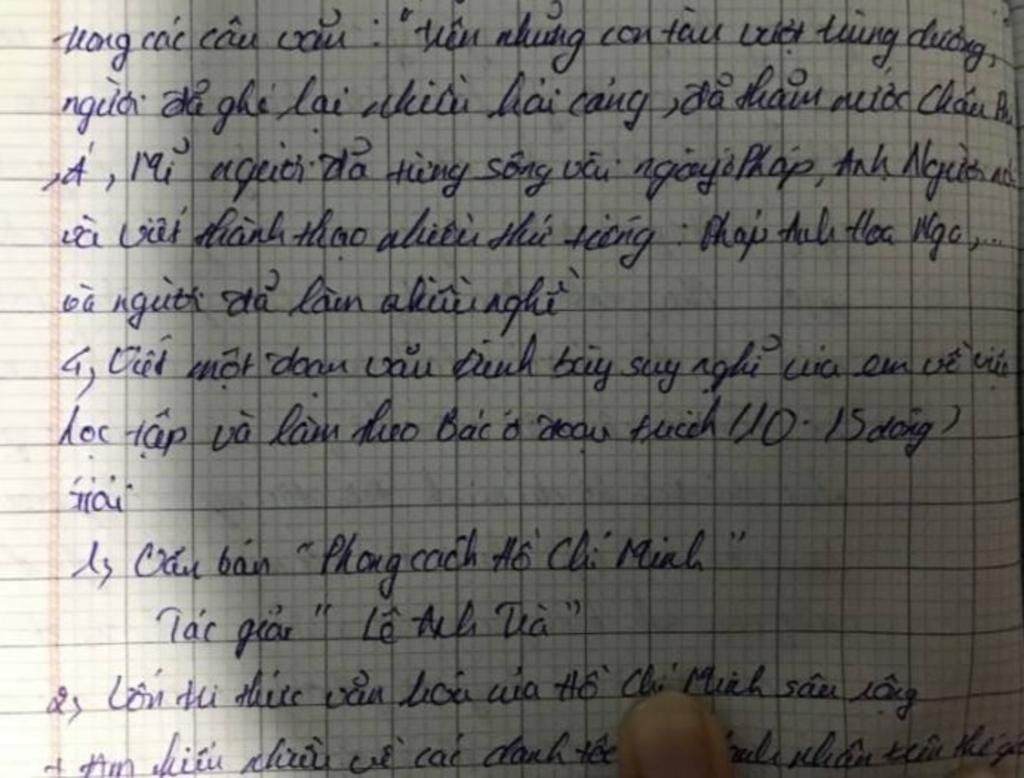 trong các câu văn : "trên những con tàu vượt trùng dương,
người đã ghé lại nhiều hải cảng, đã thăm nước Châu
, Á, Mĩ người đã từng sống dài ngày ở Pháp, Anh Người
và viết thành thạo nhiều thứ tiếng : Pháp Anh Hoa Nga,...
và người đã làm nhiều nghề"
4, Viết một đoạn văn trình bày suy nghĩ của em về việc
học tập và làm theo Bác ở đoạn trích (10 - 15 dòng)
1, Văn bản "Phong cách Hồ Chí Minh"
Tác giả " Lê Anh Trà"
2, Vốn tri thức văn hoá của Hồ Chí Minh sâu rộng
+ Am hiểu nhiều về các danh tộc nhân trên thế